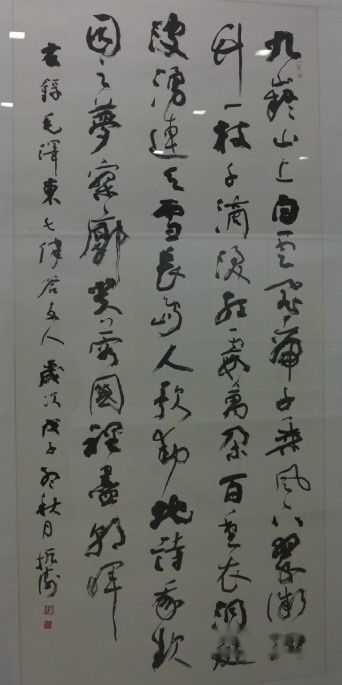 九嶷山上白雲飛帝子乘風下翠微
竹一枝千滴淚紅霞萬朵百重衣洞庭
波湧連天雪長島人歌動地詩我欲
因之夢寥廓芙蓉國裡盡朝暉
右錄毛澤東七律答友人 歲次戊子秋月振